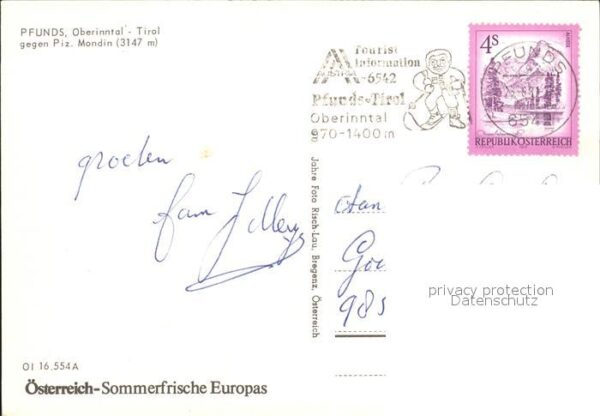 PFUNDS, Oberinntal - Tirol
gegen Piz. Mondin (3147 m)
Tourist
Information
AUSTRIA
A-6542
Pfunds-Tirol
Oberinntal
970-1400m
4S
PFUNDS
654
REPUBLIK ÖSTERREICH
groeten
fam
60 Jahre Foto Risch-Lau, Bregenz, Österreich
privacy protection
Datenschutz
OI 16.554A
Österreich-Sommerfrische Europas